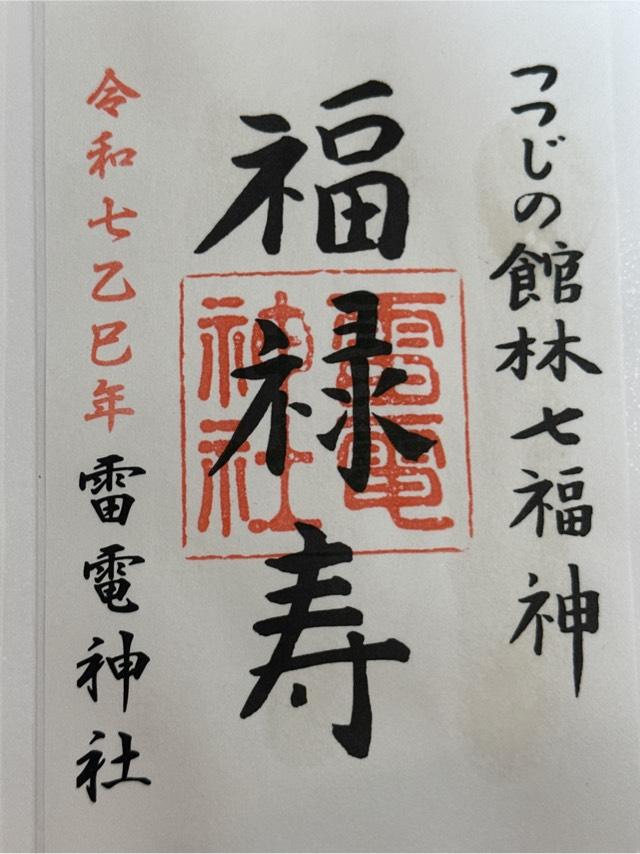 つつじの館林七福神
福禄寿
雷電神社
令和七乙巳年
雷電神社